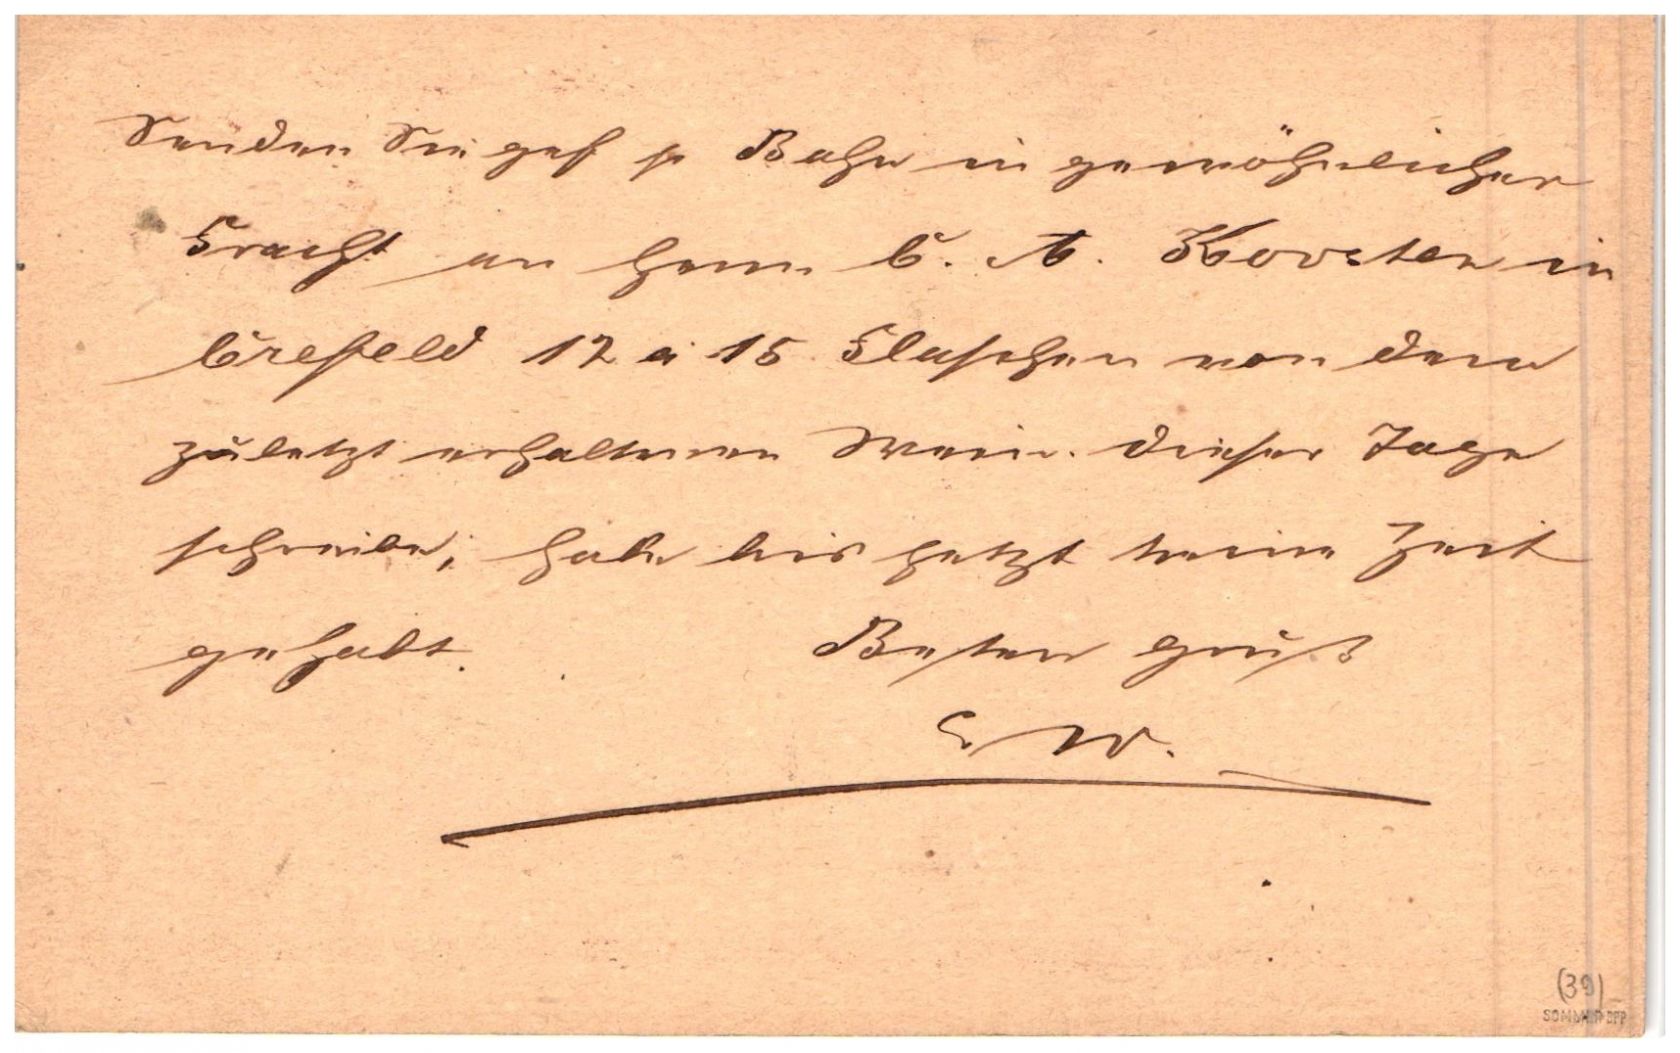 Senden Sie gef p Bahn in gewöhnlicher
Fracht an Herrn C. A. Korsten in
Crefeld 12 a 15 Flaschen von dem
zuletzt erhaltenen Wein. Dieser Tage
schreibe, habe bis jetzt keine Zeit
gehabt. Besten Gruß
E W.
(39)